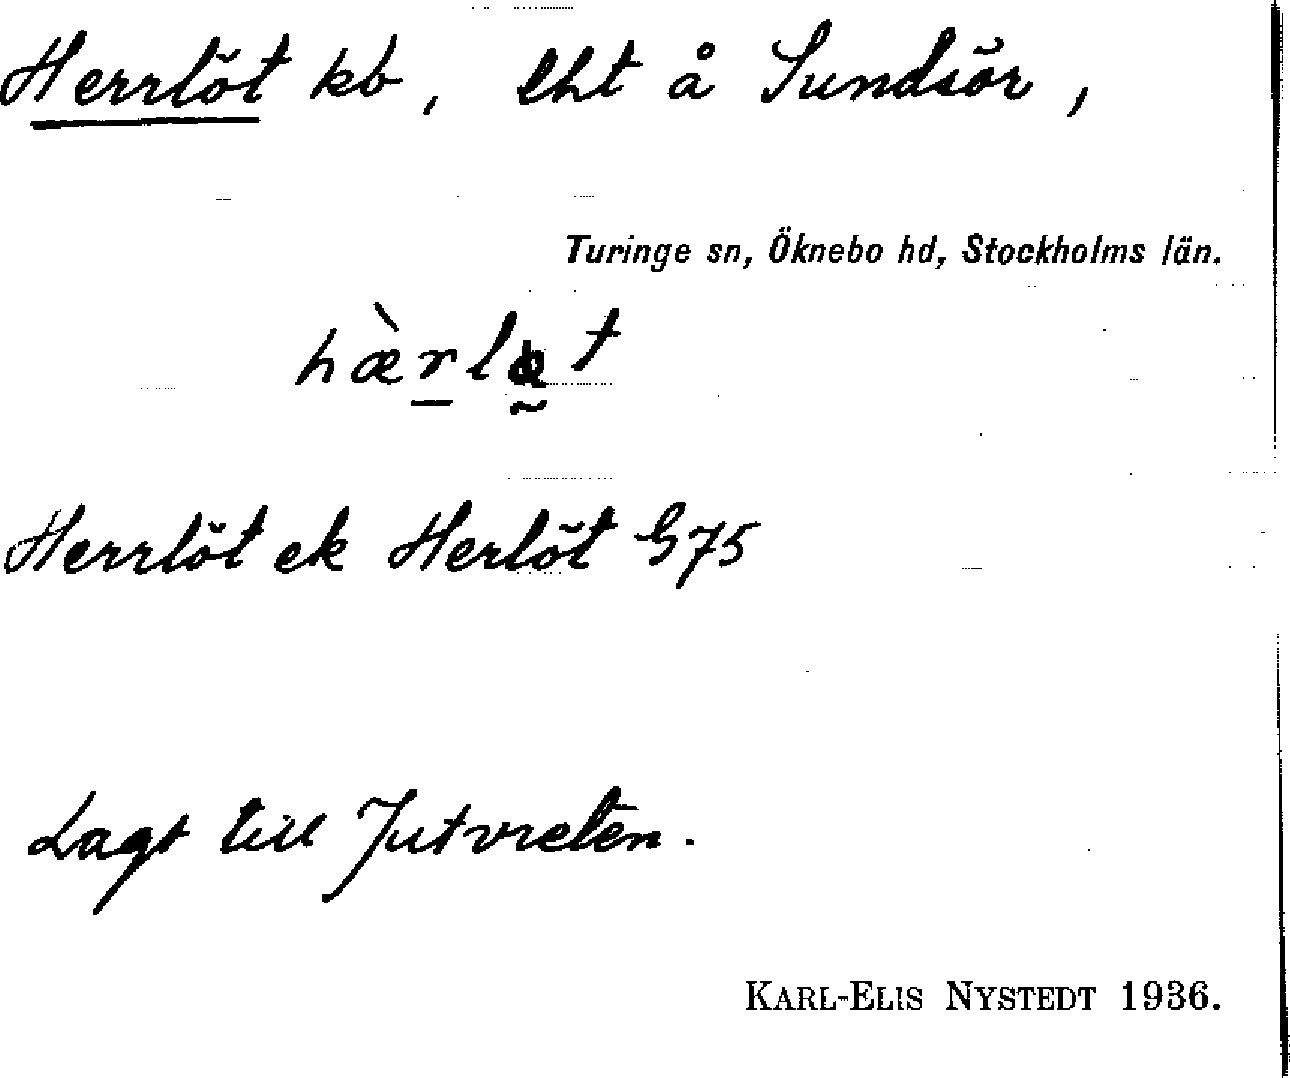 Herrlöt kb, lht å Sundsör,
Turinge sn, Öknebo hd, Stockholms län.
hæ̀rlət
Herrlöt ek Herlöt G75
Lagt till Jutvreten.
KARL-ELIS NYSTEDT 1936.